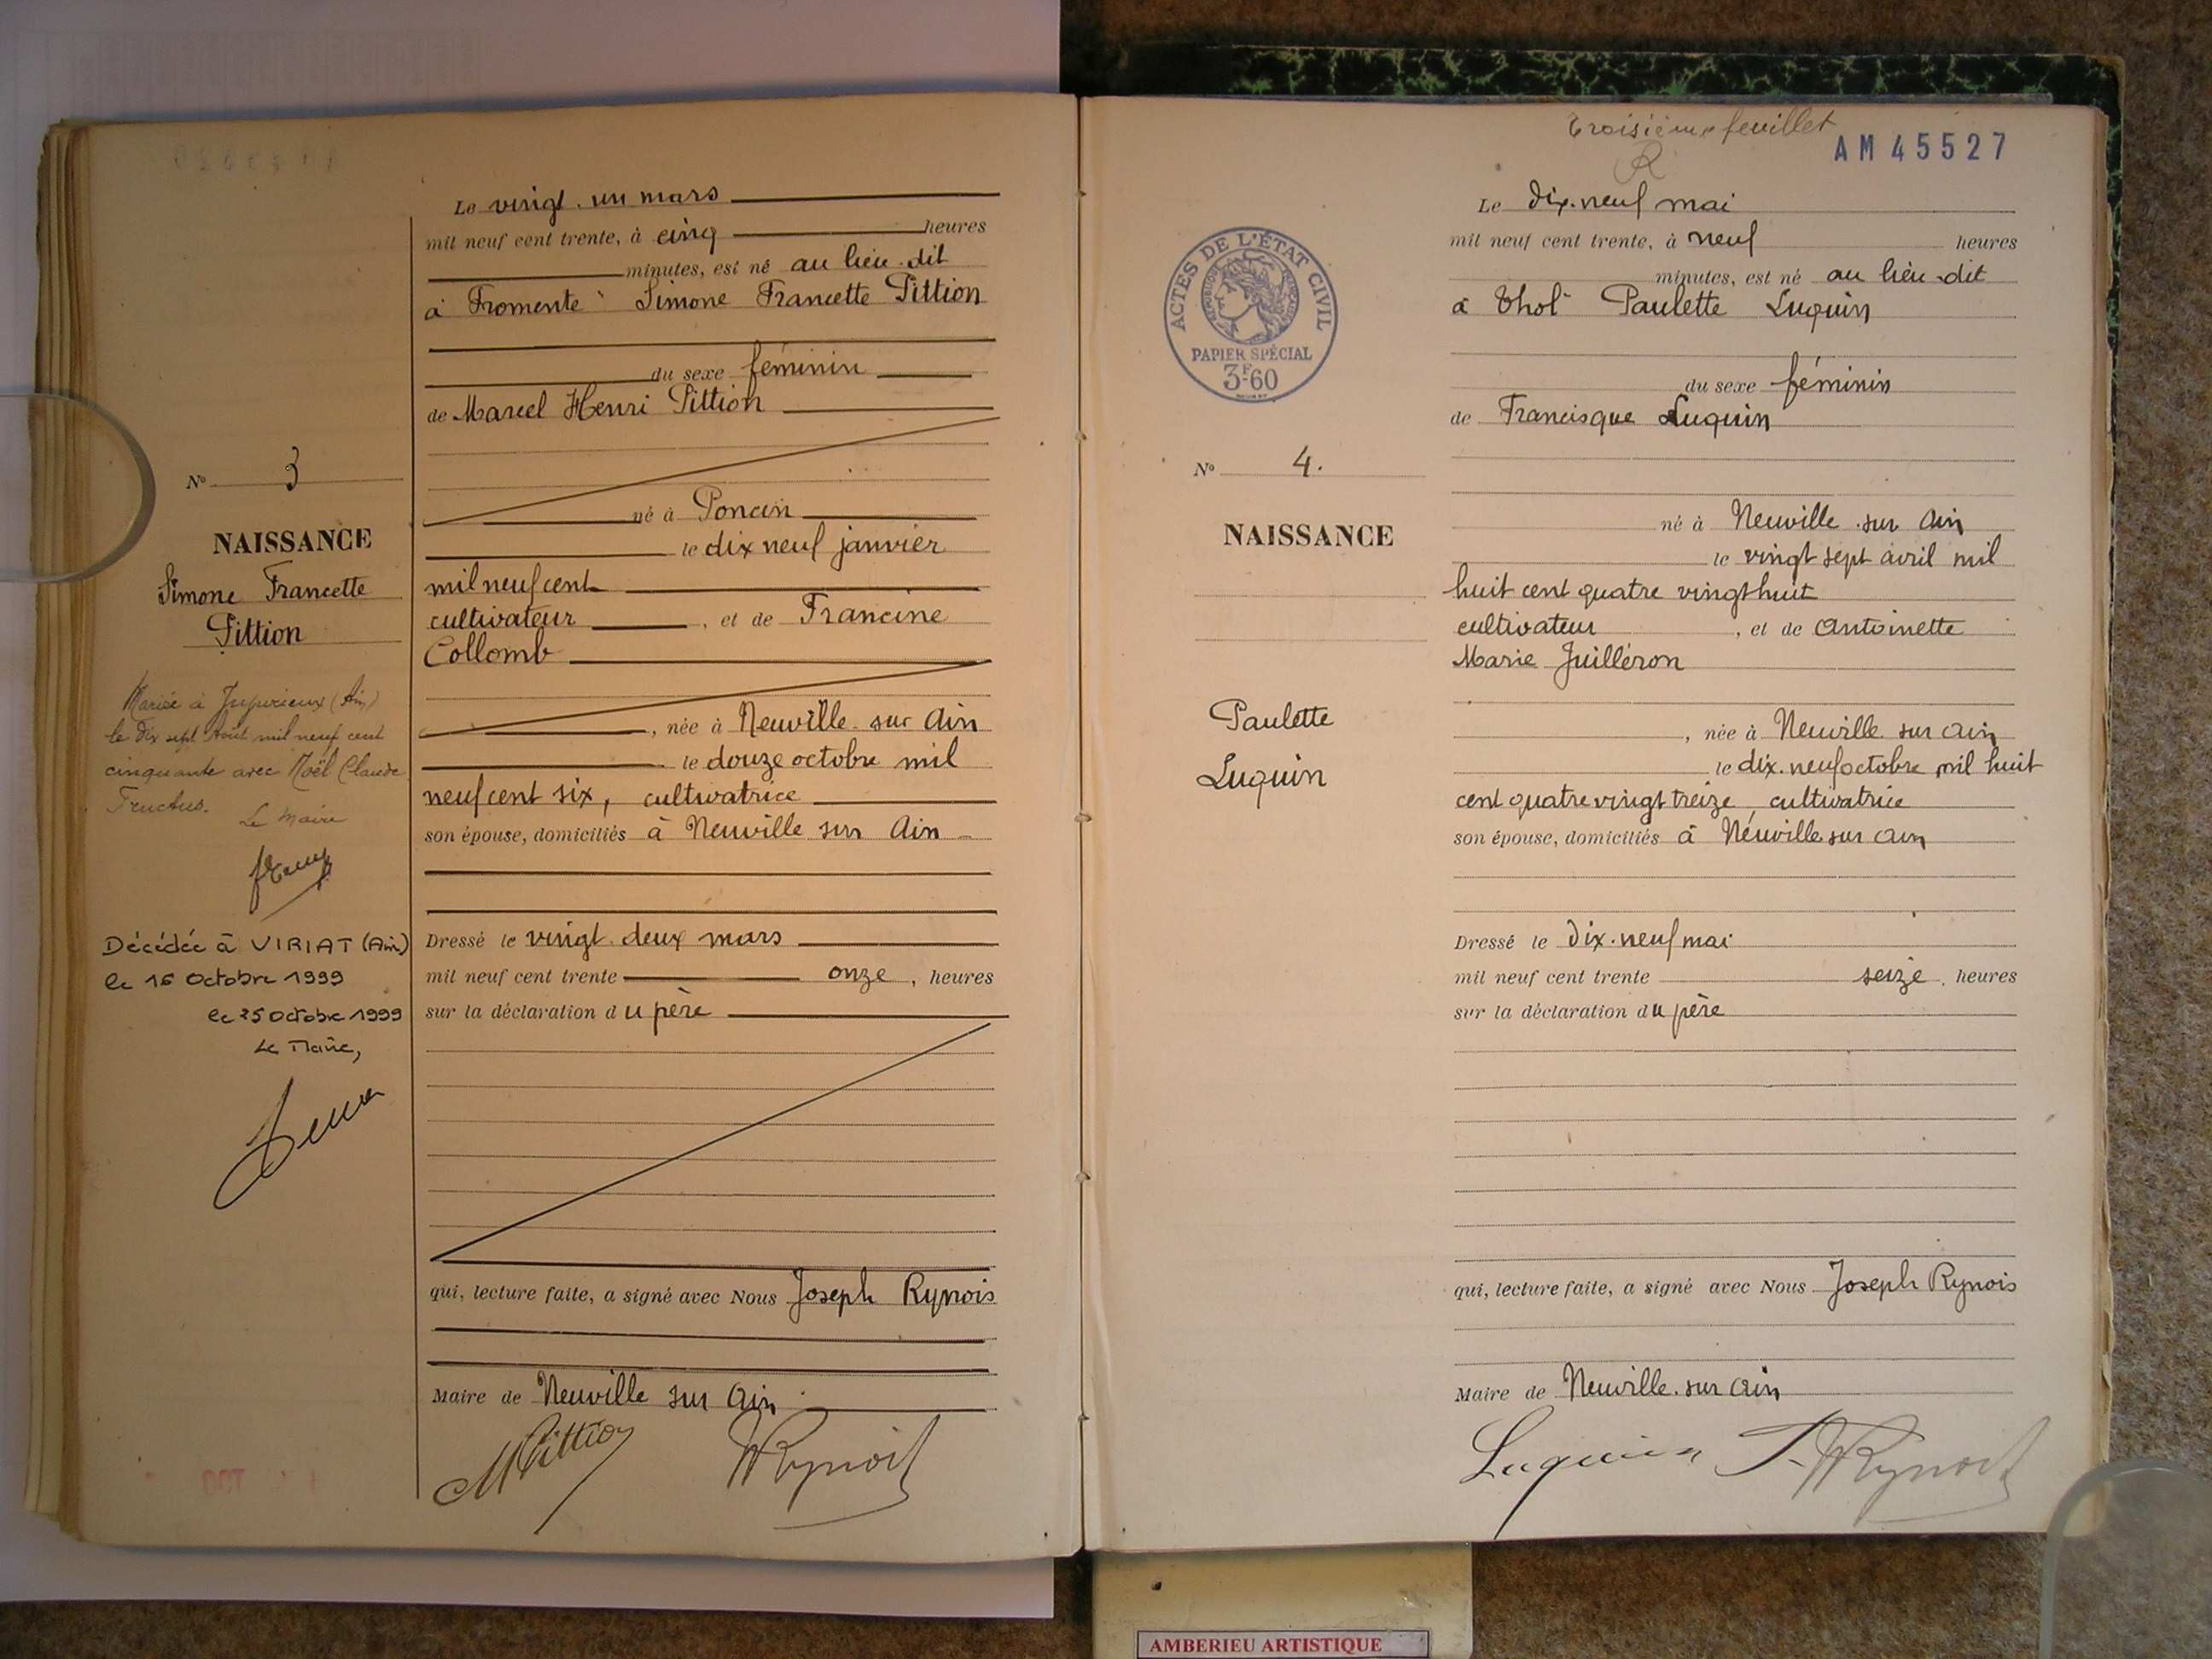 Le vingt.un mars
mil neuf cent trente, à cinq heures
minutes, est né au lieu.dit
à Fromente Simone Francette Pittion
du sexe féminin
de Marcel Henri Pittion
né à Poncin
le dix neuf janvier
mil neuf cent
cultivateur, et de Francine
Collomb
, née à Neuville sur Ain
le douze octobre mil
neuf cent six, cultivatrice
son épouse, domiciliés à Neuville sur Ain
Dressé le vingt.deux mars
mil neuf cent trente onze, heures
sur la déclaration du père
qui, lecture faite, a signé avec Nous Joseph Rynois
Maire de Neuville sur Ain
MPittion Rynois
N° 3
NAISSANCE
Simone Francette
Pittion
Mariée à Jujurieux (Ain)
le dix sept Août mil neuf cent
cinquante avec Noël Claude
Fructus. Le Maire
Décédée à VIRIAT (Ain)
le 16 Octobre 1999
le 25 Octobre 1999
Le Maire,
Troisième feuillet
AM 45527
ACTES DE L'ÉTAT CIVIL
RÉPUBLIQUE FRANÇAISE
PAPIER SPÉCIAL
3F60
N° 4.
NAISSANCE
Paulette
Luquin
Le dix.neuf mai
mil neuf cent trente, à neuf heures
minutes, est né au lieu dit
à Thol Paulette Luquin
du sexe féminin
de Francisque Luquin
né à Neuville.sur Ain
le vingt sept avril mil
huit cent quatre vingt huit
cultivateur, et de Antoinette
Marie Juilléron
, née à Neuville sur Ain
le dix.neuf octobre mil huit
cent quatre vingt treize, cultivatrice
son épouse, domiciliés à Neuville sur Ain
Dressé le dix.neuf mai
mil neuf cent trente seize, heures
sur la déclaration du père
qui, lecture faite, a signé avec Nous Joseph Rynois
Maire de Neuville.sur Ain
Luquin Rynois
AMBERIEU ARTISTIQUE